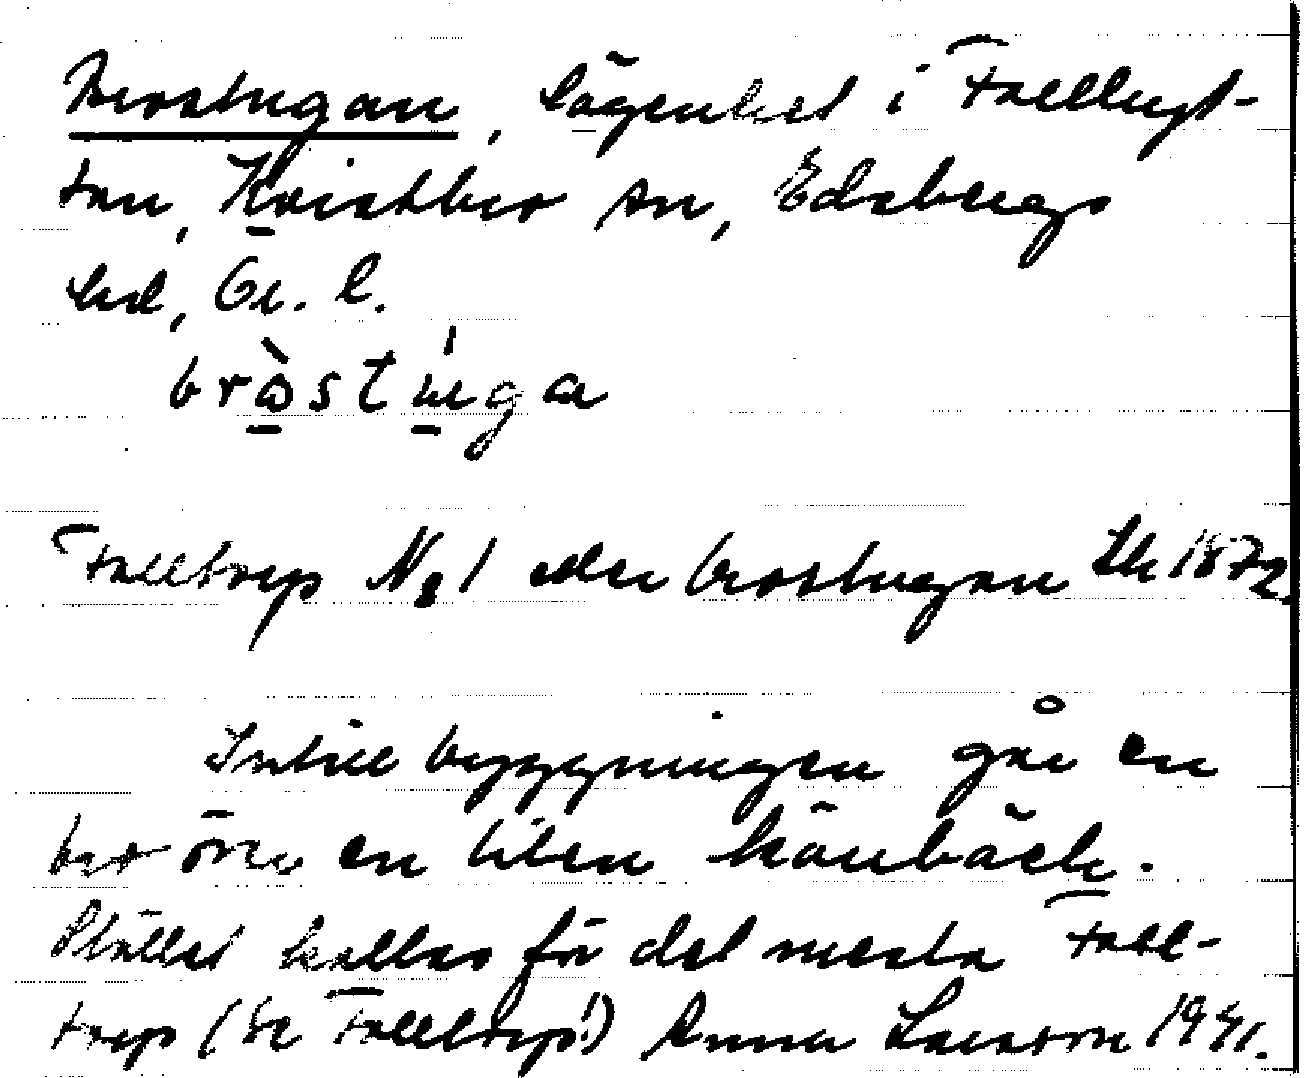 Brostugan, lägenhet i Falltryt-
tan, Kvistbro sn, Edsbergs
hd, Ör. l.
bròstúga
Falltorp No 1 eller brostugan Lk 1872.
Intill byggningen går en
bro över en liten kärrbäck.
Stället kallas för det mesta Fall-
torp (Se Falltorp!) Anna Larsson 1941.